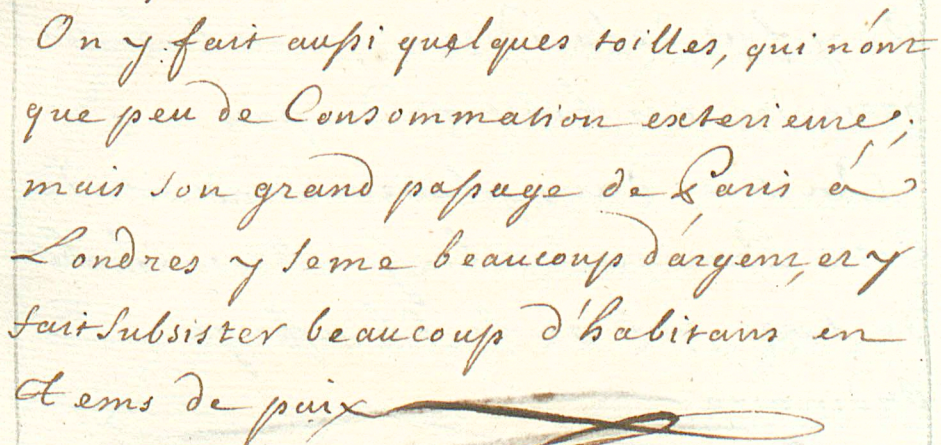 On y fait aussi quelques toilles, qui n'ont
que peu de Consommation exterieure;
mais son grand passage de Paris á
Londres y seme beaucoup d'argent, et y
fait subsister beaucoup d'habitans en
tems de paix